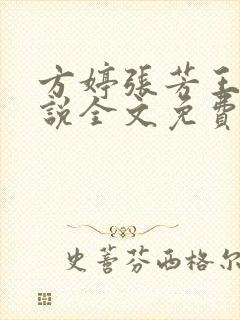 方婷張芳王
說全文免費
史蓍芬西格尔